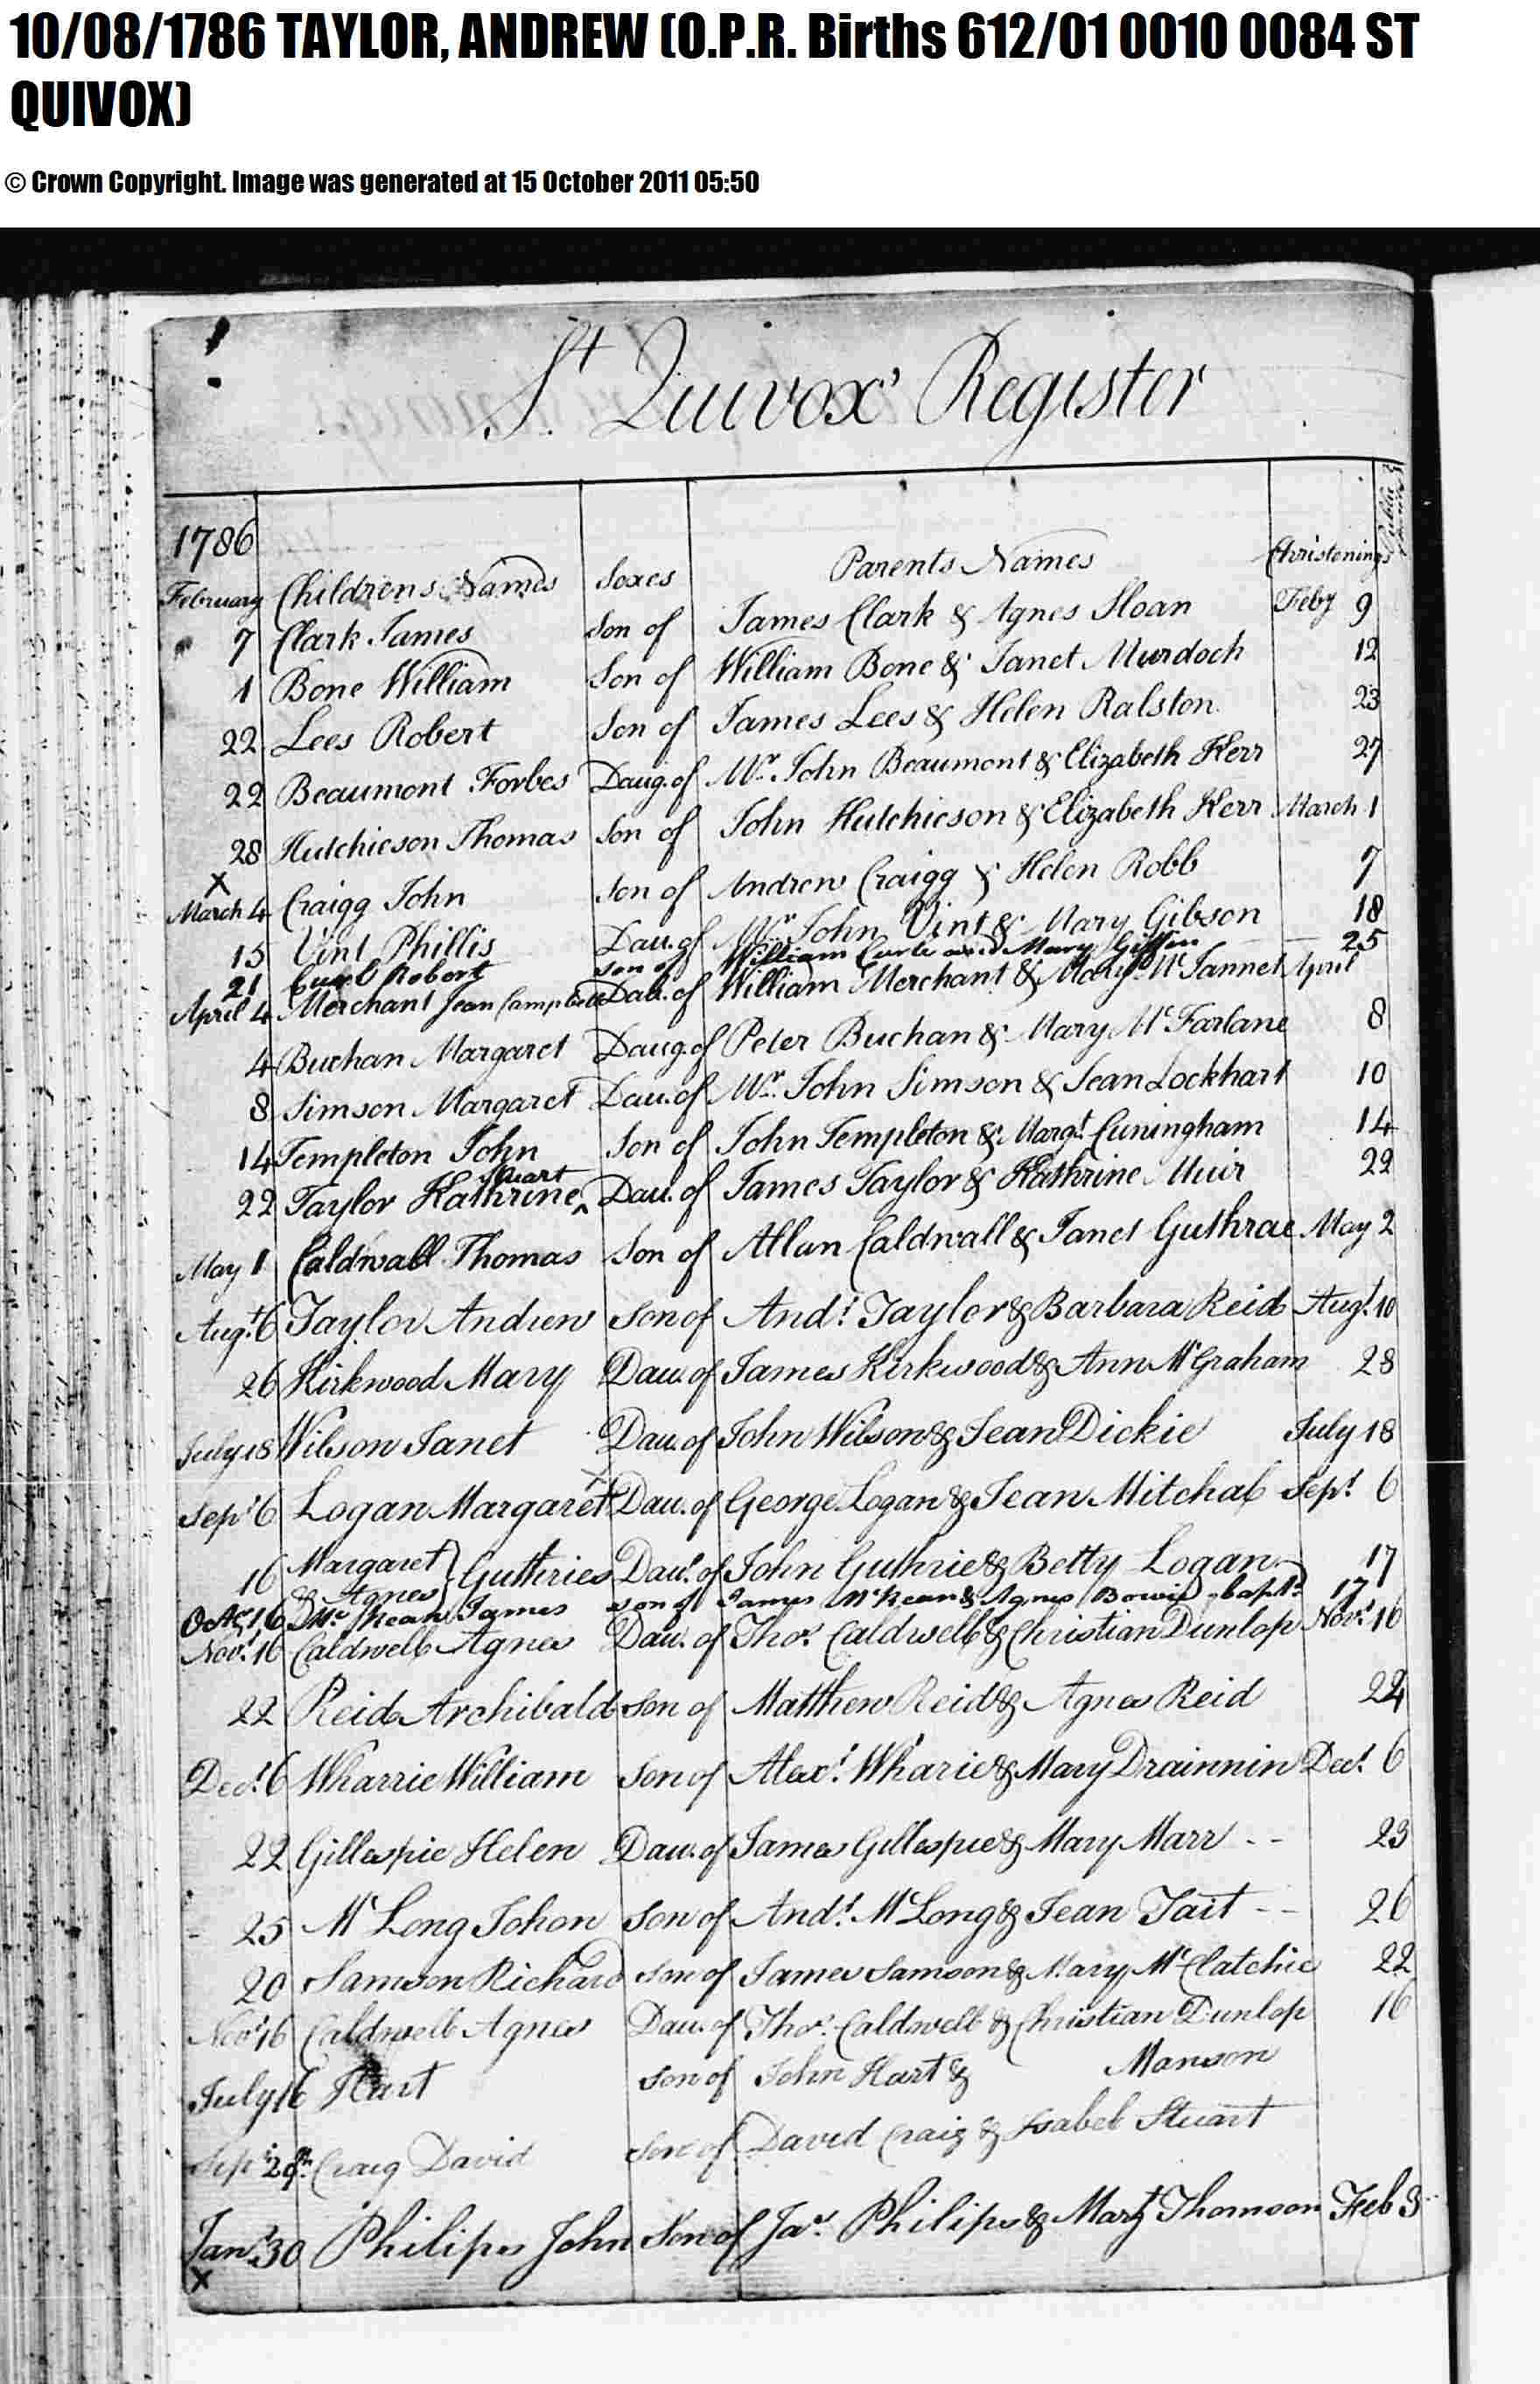 10/08/1786 TAYLOR, ANDREW (O.P.R. Births 612/01 0010 0084 ST
QUIVOX)
© Crown Copyright. Image was generated at 15 October 2011 05:50
St Quivox Register
1786
February Childrens Names Sexes Parents Names Christenings
7 Clark James Son of James Clark & Agnes Sloan Feby 9
1 Bone William Son of William Bone & Janet Murdoch 12
22 Lees Robert Son of James Lees & Helen Ralston 23
22 Beaumont Forbes Daug. of Mr. John Beaumont & Elizabeth Kerr 27
28 Hutchieson Thomas Son of John Hutchieson & Elizabeth Kerr March 1
X
March 4 Craigg John Son of Andrew Craigg & Helen Robb 7
15 Vint Phillis Dau. of Mr. John Vint & Mary Gibson 18
21 Robert Son of William and Mary Giffen 25
April 4 Merchant Jean Campbell Dau. of William Merchant & Mary McJannet April
4 Buchan Margaret Daug. of Peter Buchan & Mary McFarlane 8
8 Simson Margaret Dau. of Mr. John Simson & Jean Lockhart 10
14 Templeton John Son of John Templeton & Margt. Cuningham 14
Stuart
22 Taylor Kathrine ‸ Dau. of James Taylor & Kathrine Muir 22
May 1 Caldwall Thomas Son of Allan Caldwall & Janet Guthrae May 2
Augt. 6 Taylor Andrew Son of Andw. Taylor & Barbara Reid Augt. 10
26 Kirkwood Mary Dau. of James Kirkwood & Ann McGraham 28
July 18 Wilson Janet Dau. of John Wilson & Jean Dickie July 18
Sepr 6 Logan Margaret Dau. of George Logan & Jean Mitchal Sepr. 6
16 Margaret & Agnes } Guthries Daus. of John Guthrie & Betty Logan 17
Octr. 16 McKean James son of James McKean & Agnes Bowie bapt. 17
Novr. 16 Caldwell Agnes Dau. of Thos. Caldwell & Christian Dunlop Novr. 16
22 Reid Archibald Son of Matthew Reid & Agnes Reid 24
Decr. 6 Wharrie William Son of Alexr. Wharie & Mary Drainnin Decr. 6
22 Gillespie Helen Dau. of James Gillespie & Mary Marr - - 23
25 McLong Johon Son of Andw. McLong & Jean Tait - - 26
20 Samson Richard Son of James Samson & Mary McClatchie 22
Novr 16 Caldwell Agnes Dau. of Thos. Caldwell & Christian Dunlop 16
July 16 Hart Son of John Hart & Manson
Sepr 28th. Craig David Son of David Craig & Isabel Stuart
Janr. 30 Philips John Son of Jas. Philips & Mary Thomson Feb 3
X